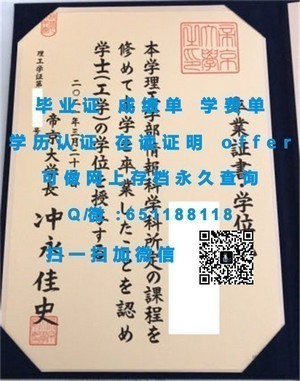 毕业证 成绩单 学费单
学历认证 在读证明 offer
可做网上存档永久查询
Q/微:653188118
扫一扫加微信
卒業証書・学位
本学理工学部情報科学科所定の課程を
修めて本学を卒業したことを認め
学士(工学)の学位を授与する
帝京大学長 冲永佳史
理工学証第
号